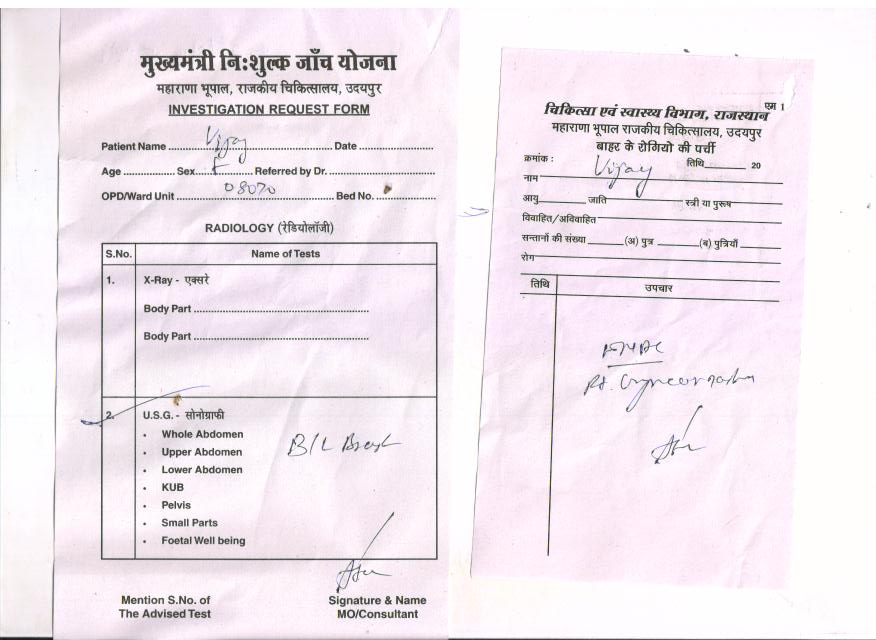 मुख्यमंत्री निःशुल्क जाँच योजना
महाराणा भूपाल, राजकीय चिकित्सालय, उदयपुर
INVESTIGATION REQUEST FORM
Patient Name Vijay Date
Age Sex F Referred by Dr.
OPD/Ward Unit 08070 Bed No.
RADIOLOGY (रेडियोलॉजी)
S.No. Name of Tests
1. X-Ray - एक्सरे
Body Part
Body Part
2. U.S.G. - सोनोग्राफी
• Whole Abdomen
B/L Breast
• Upper Abdomen
• Lower Abdomen
• KUB
• Pelvis
• Small Parts
• Foetal Well being
Mention S.No. of
The Advised Test
Signature & Name
MO/Consultant
एम 1
चिकित्सा एवं स्वास्थ्य विभाग, राजस्थान
महाराणा भूपाल राजकीय चिकित्सालय, उदयपुर
बाहर के रोगियो की पर्ची
क्रमांक : तिथि 20
नाम Vijay
आयु जाति स्त्री या पुरूष
विवाहित/अविवाहित
सन्तानों की संख्या (अ) पुत्र (ब) पुत्रियाँ
रोग
तिथि उपचार
FNAC